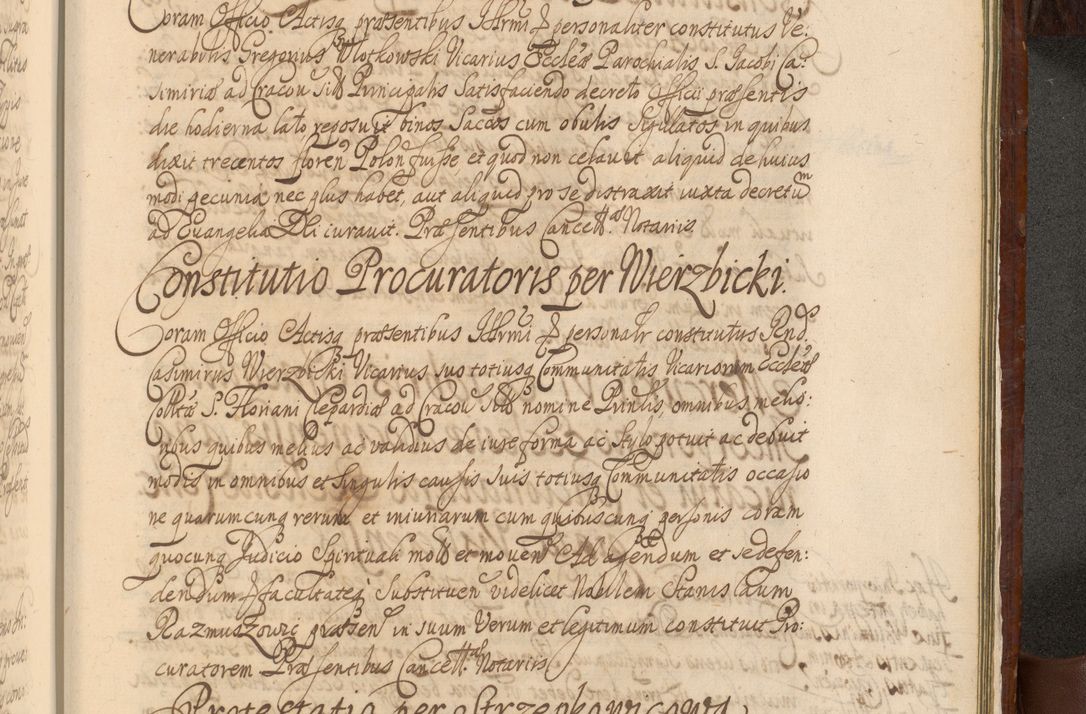 Coram Officio Actisq præsentibus Illrmi D personaliter constitutus Ve:
nerabilis Gregorius Wlotkowski Vicarius Ecclæ Parochialis S. Jacobi Ca:
simiriæ ad Cracou Principalis Satisfaciendo decreto Officii præsentis
die hodierna lato reposuit binos Saccos cum obulis Sigillatos in quibus
dixit trecentos floren Polon fuisse et quod non celavit aliquid de huius
modi pecunia nec plus habet, aut aliquid pro se distraxit iuxta decretum
ad Evangelia Dei iuravit. Præsentibus Cancell. Notariis
Constitutio Procuratoris per Wierzbicki.
Coram Officio Actisq præsentibus Illrmi D personalr constitutus Rnd.
Casimirus Wierzbicki Vicarius suo totiusq Communitatis Vicariorum Ecclæ
Colltæ S. Floriani Clepardiæ ad Cracou nomine Prinlis omnibus melio:
ribus quibus melius ac validius de iure forma ac stylo potuit ac debuit
modis in omnibus et singulis causis suis totiusq Communitatis occasio
ne quarumcunq rerum et iniuriarum cum quibuscunq personis coram
quocunq Judicio Spirituali mot et moven Ad agendum et se defen:
dendum facultateq Substituen videlicet Nobilem Stanislaum
Razmuszowic præsen in suum Verum et legitimum constituit Pro:
curatorem Præsentibus Cancell. Notariis
Protestatio per Strzepkowicowi